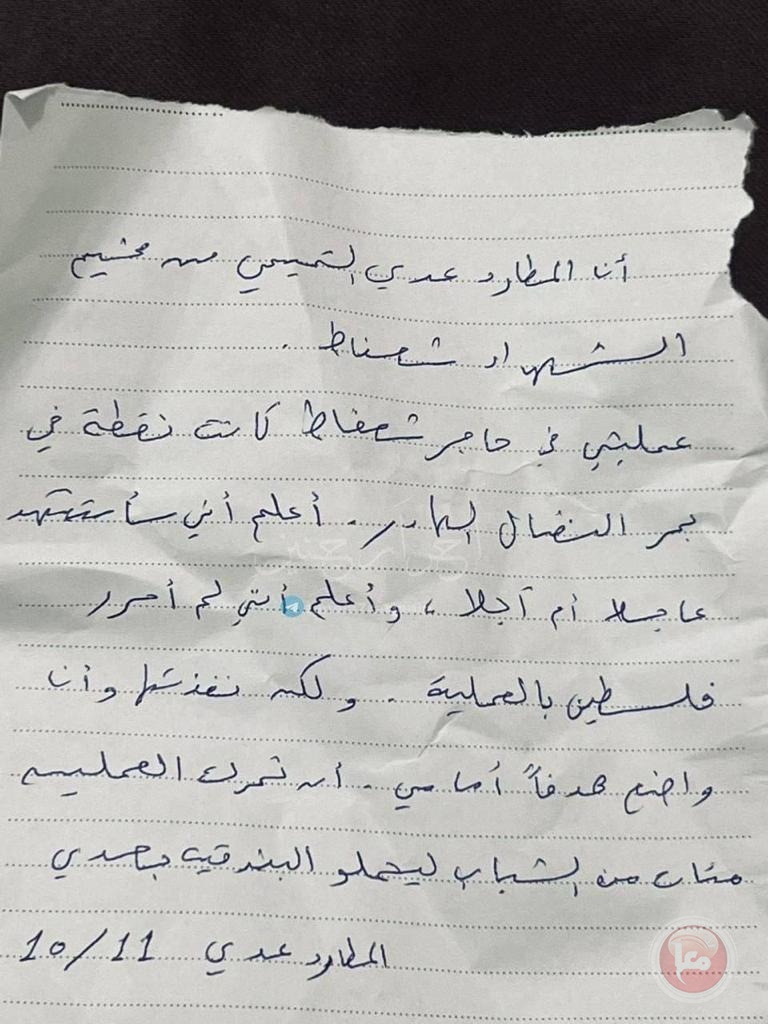 أنا المطارد عدي التميمي من مخيم
الشهداء شعفاط .
عمليتي في حاجز شعفاط كانت نقطة في
بحر النضال الهادر . أعلم أني سأستشهد
عاجلا أم آجلا ، وأعلم أنني لم أحرر
فلسطين بالعملية . ولكن نفذتها وأنا
واضع هدفاً أمامي . أن تحرك العملية
مئات من الشباب ليحملو البندقية بعدي
المطارد عدي 10/11
معا